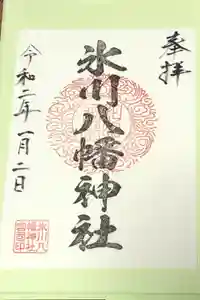 奉拝
氷川八幡神社
令和二年一月二日
氷川八
幡神社